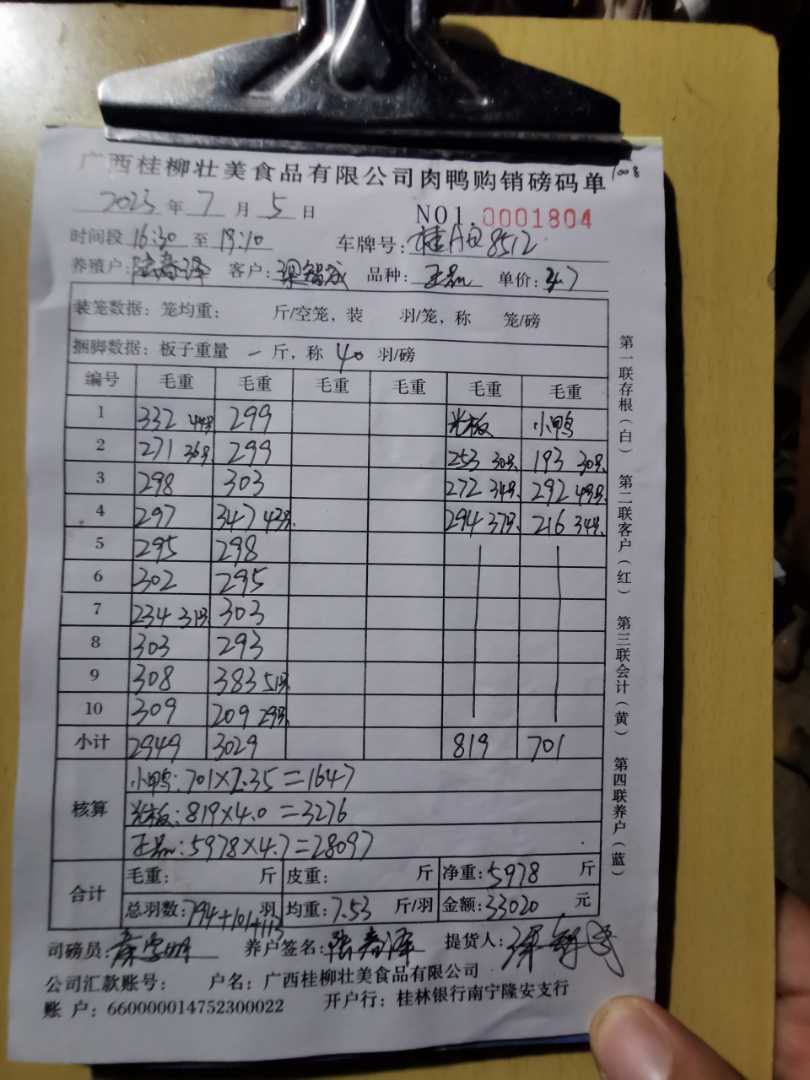 广西桂柳壮美食品有限公司肉鸭购销磅码单 1008
2025 年 7 月 5 日 NO1.0001804
时间段 16:30 至 19:10 车牌号: 桂A 8512
养殖户: 陆春泽 客户: 梁智成 品种: 正品 单价: 4.7
装笼数据: 笼均重: 斤/空笼, 装 羽/笼, 称 笼/磅
捆脚数据: 板子重量 一 斤, 称 40 羽/磅
编号 毛重 毛重 毛重 毛重 毛重 毛重
1 332 44只 299 光板 小鸭
2 271 36只 299 253 30只 193 30只
3 298 303 272 34只 292 49只
4 297 347 43只 294 37只 216 34只
5 295 298
6 302 295
7 234 31只 303
8 303 293
9 308 383 51只
10 309 209 29只
小计 2949 3029 819 701
核算
小鸭: 701×2.35=1647
光板: 819×4.0=3276
正品: 5978×4.7=28097
合计 毛重: 斤 皮重: 斤 净重: 5978 斤
总羽数: 794+101+113 羽 均重: 7.53 斤/羽 金额: 33020 元
司磅员: 养户签名: 陆春泽 提货人:
公司汇款账号: 户名: 广西桂柳壮美食品有限公司
账 户: 660000014752300022 开户行: 桂林银行南宁隆安支行
第一联存根(白) 第二联客户(红) 第三联会计(黄) 第四联养户(蓝)